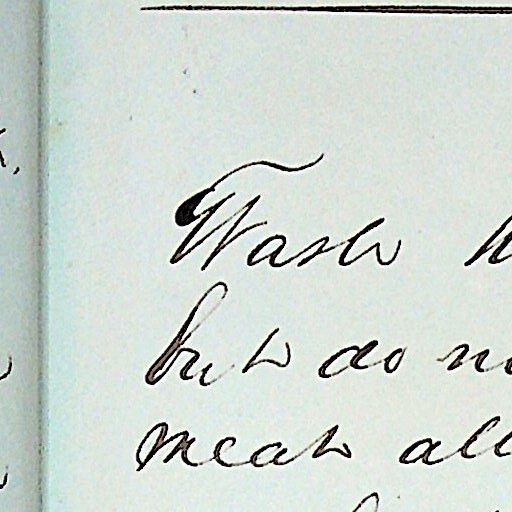 Wash
but do
meat all